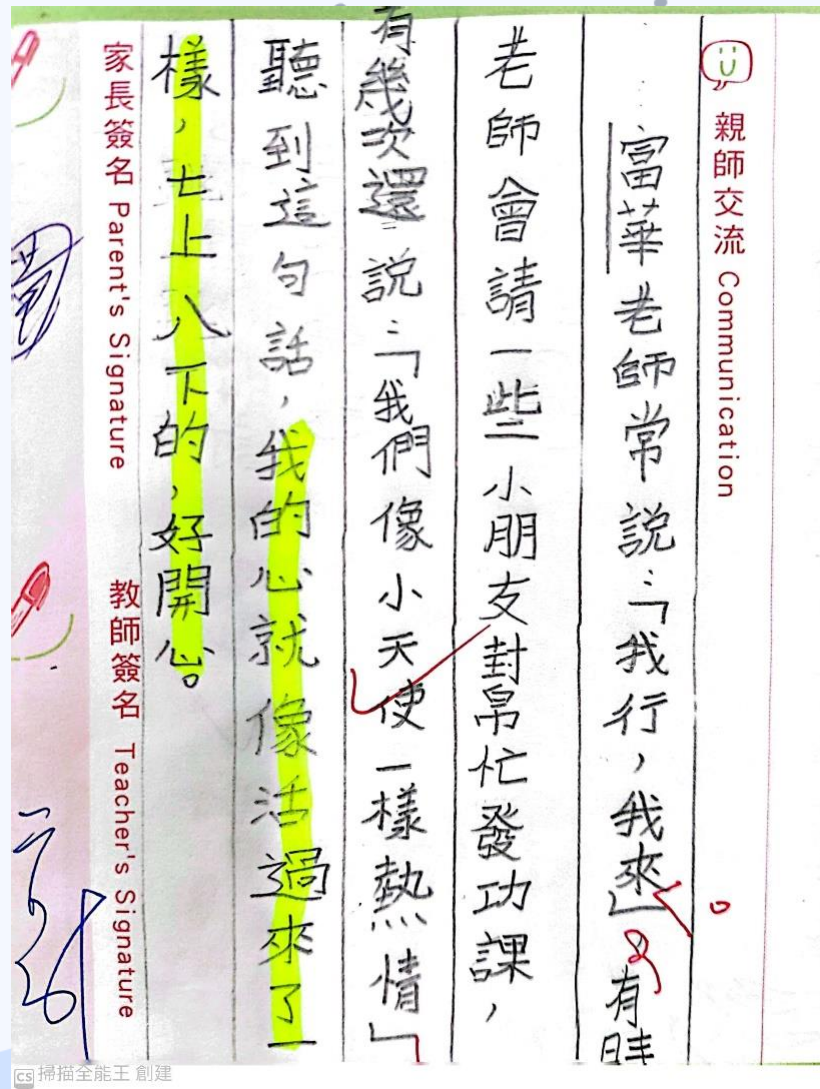 親師交流 Communication
富華老師常說：「我行，我來」。有時
老師會請一些小朋友幫忙發功課，
有幾次還說：「我們像小天使一樣熱情」
聽到這句話，我的心就像活過來了一
樣，七上八下的，好開心。
家長簽名 Parent's Signature 教師簽名 Teacher's Signature
CS 掃描全能王 創建